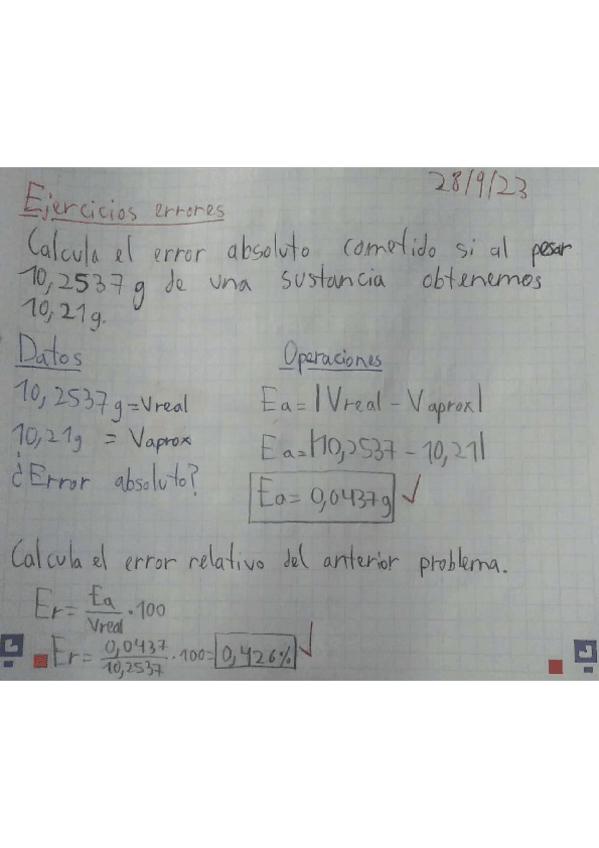 28/9/23
Ejercicios errores
Calcula el error absoluto cometido si al pesar
10,2537g de una sustancia obtenemos
10,21g.
Datos
10,2537g=Vreal
10,21g = Vaprox
¿Error absoluto?
Operaciones
Ea=|Vreal - Vaprox|
Ea=|10,2537 - 10,21|
Ea= 0,0437g ✓
Calcula el error relativo del anterior problema.
Er= Ea/Vreal · 100
Er= 0,0437/10,2537 · 100= 0,426% ✓